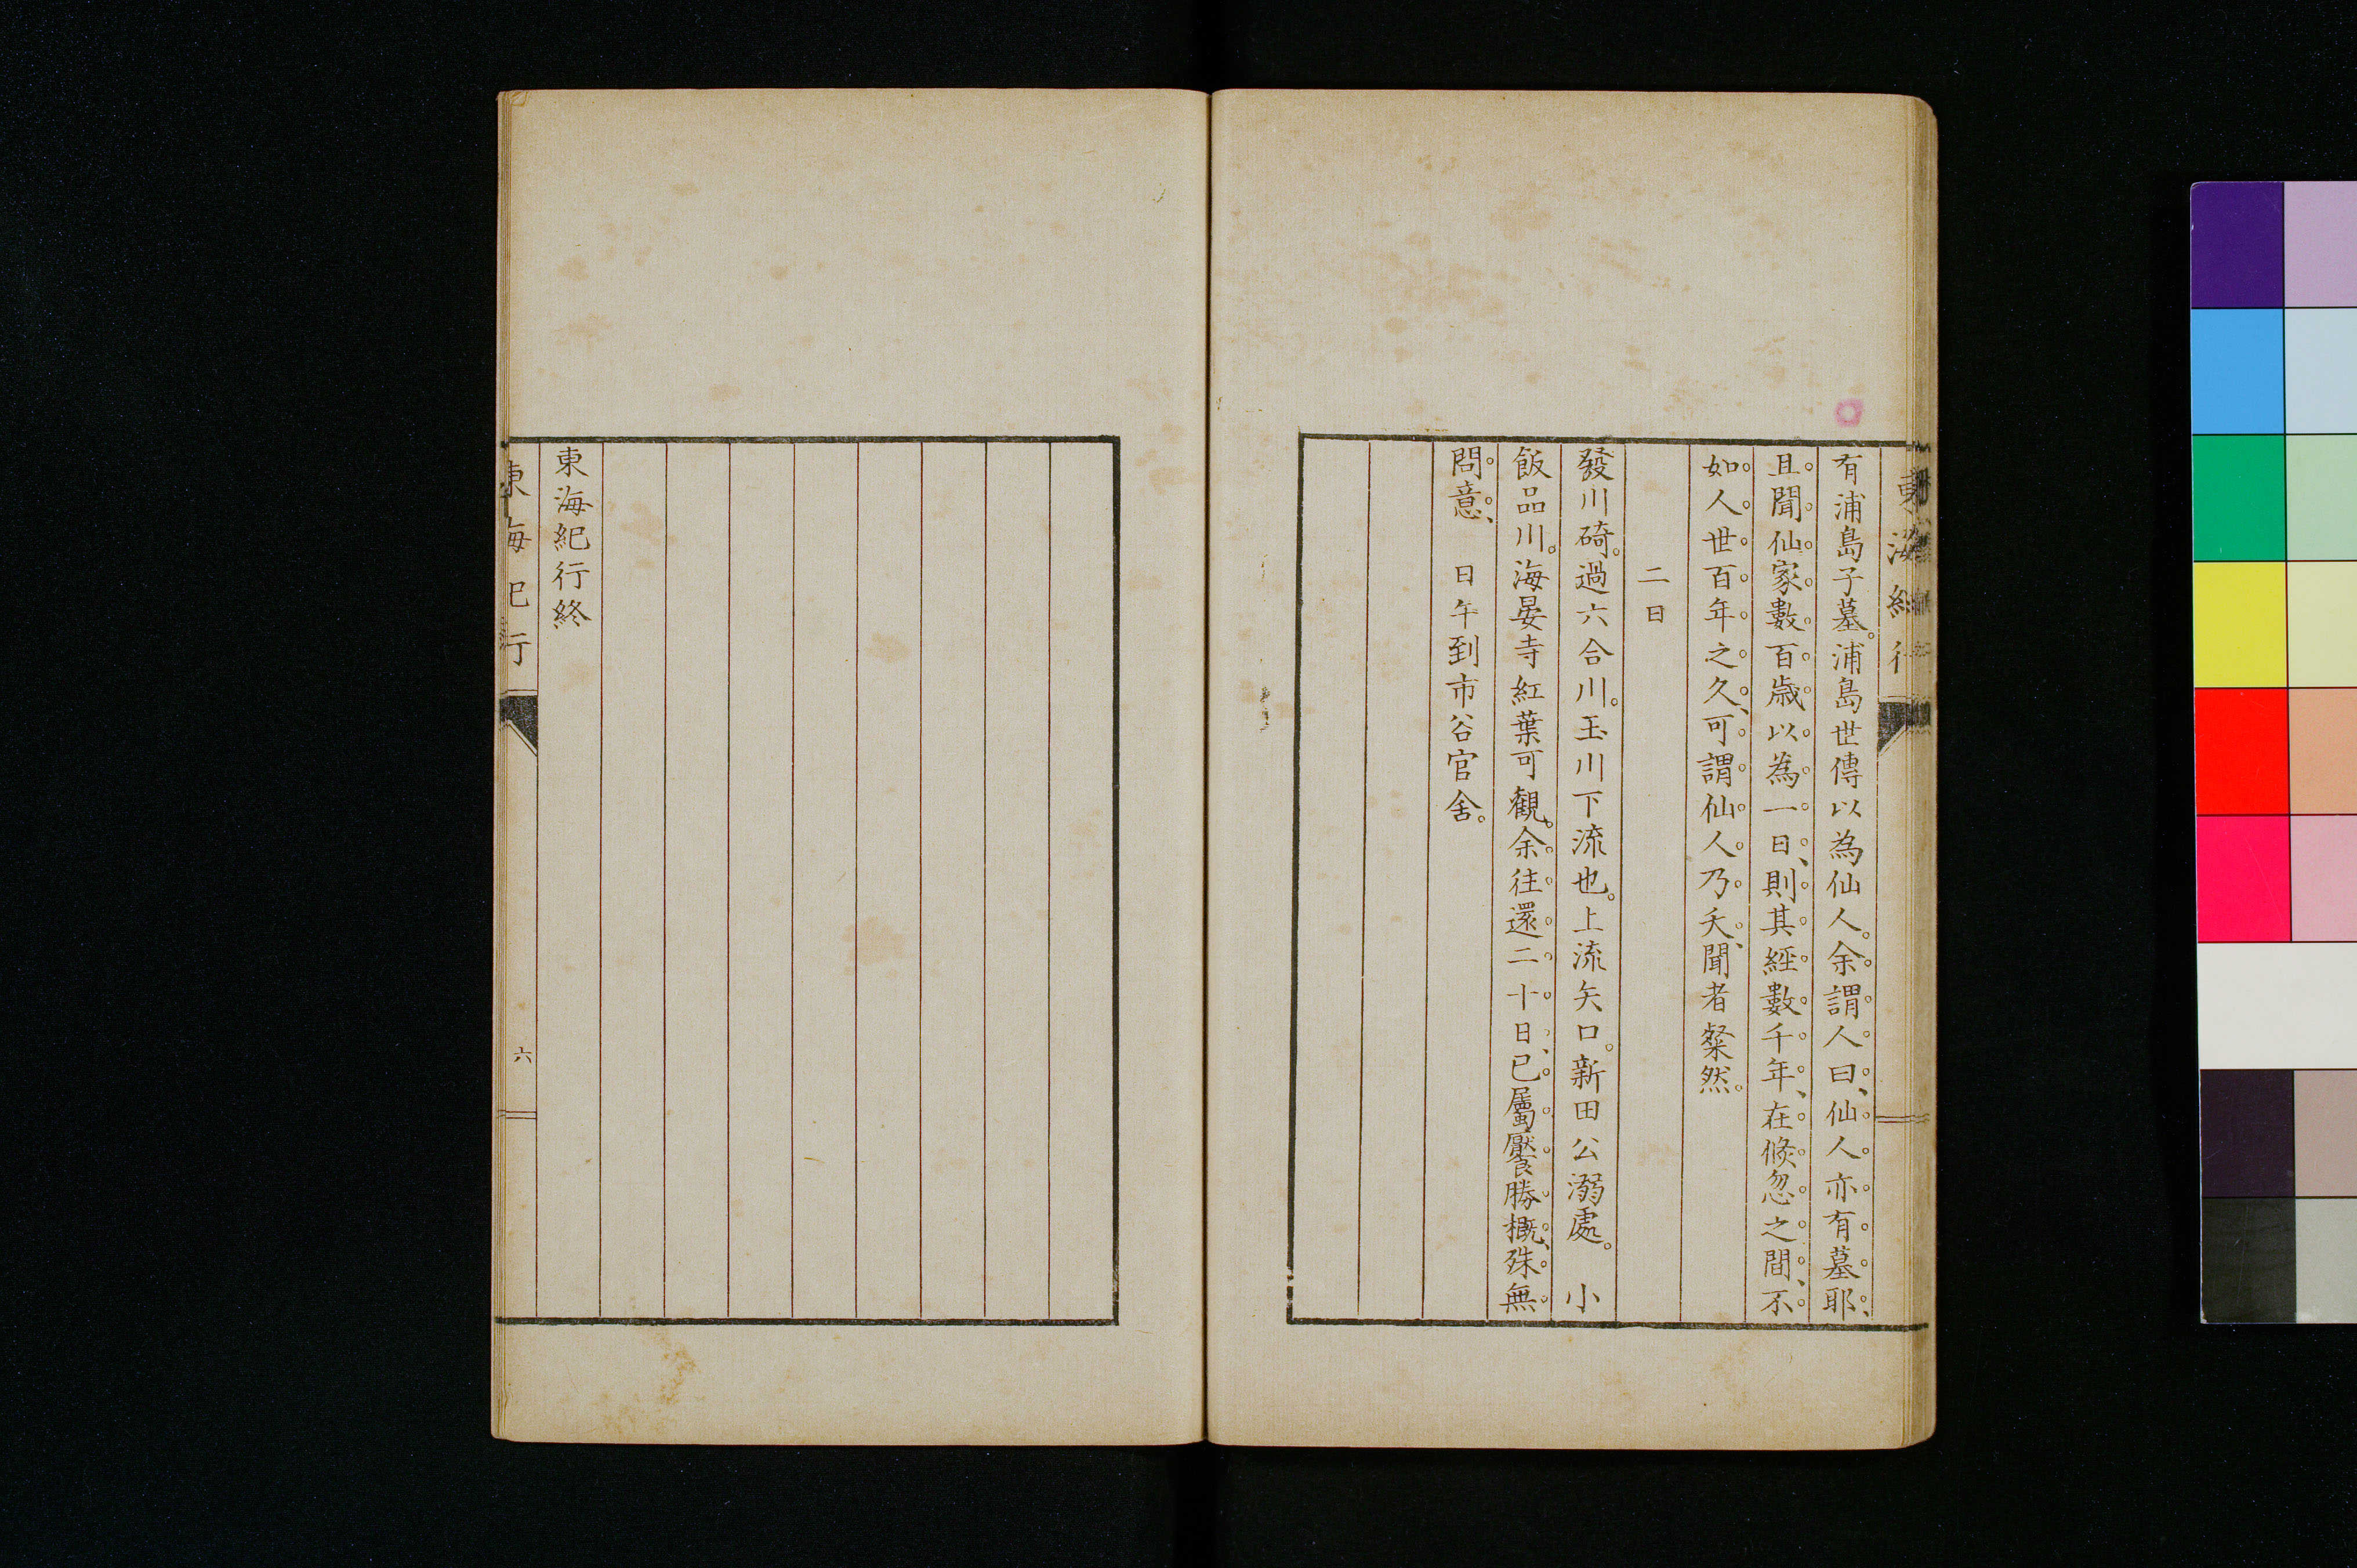 東海紀行
有浦島子墓。浦島世傳以為仙人。余謂人曰、仙人亦有墓耶、
且聞仙家數百歲以為一日、則其經數千年、在倏忽之間、不
如人世百年之久、可謂仙人乃夭、聞者粲然。
二日
發川碕。過六合川。玉川下流也。上流矢口。新田公溺處。 小
飯品川。海晏寺紅葉可觀。余往還二十日、已屬饜勝概、殊無
問意、 日午到市谷官舍。
東海紀行終
東海紀行
六